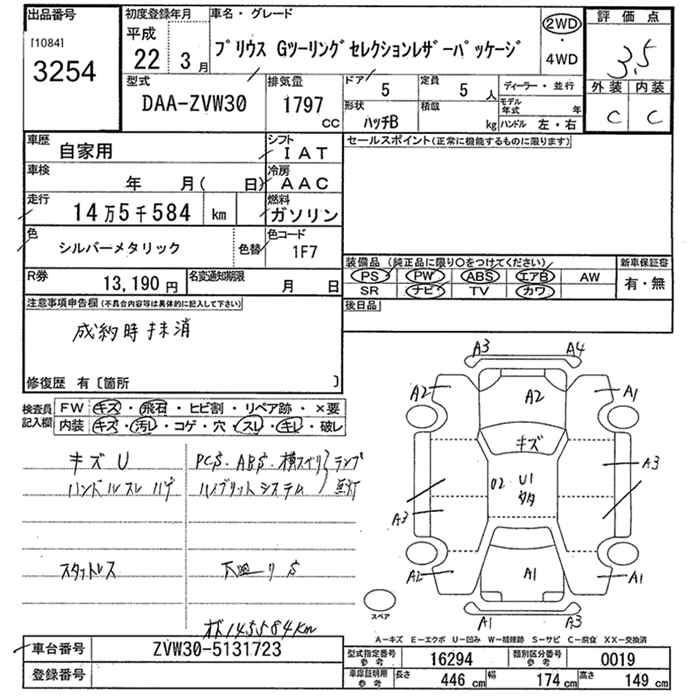 出品番号 初度登録年月 車名・グレード 評価点
[1084] 3254
平成 22 3月 プリウス Gツーリングセレクションレザーパッケージ 2WD・4WD 3.5
型式 DAA-ZVW30 排気量 1797 CC ドア 5 定員 5人 ディーラー・並行 外装 C 内装 C
形状 ハッチB 積載 kg モデル年式 年 ハンドル 左・右
車歴 自家用 シフト IAT セールスポイント(正常に機能するものに限ります)
車検 年 月( 日) 冷房 AAC
走行 14万5千584 km 燃料 ガソリン
色 シルバーメタリック 色替 色コード 1F7
装備品(純正品に限り○をつけてください) 新車保証書
PS PW ABS エアB AW 有・無
SR ナビ TV カワ
R券 13,190円 名変通知期限 月 日
後日品
注意事項申告欄(不具合内容等は具体的に記入して下さい)
成約時抹消
修復歴 有〔箇所 〕
検査員記入欄 FW キズ・飛石・ヒビ割・リペア跡・×要
内装 キズ・汚レ・コゲ・穴・スレ・キレ・破レ
キズU PCS・ABS・横スベリ ランプ
ハンドルスレハゲ ハイブリットシステム
スタットレス
145584km
A3 A4
A2 A2 A1
キズ
A3
U1
A3
A2 A1 A1
スペア
A1 A3
A―キズ E―エクボ U―凹み W―補修跡 S―サビ C―腐食 XX―交換済
車台番号 ZVW30-5131723 型式指定番号 参考 16294 類別区分番号 参考 0019
登録番号 車庫証明用 参考 長さ 446 cm 幅 174 cm 高さ 149 cm